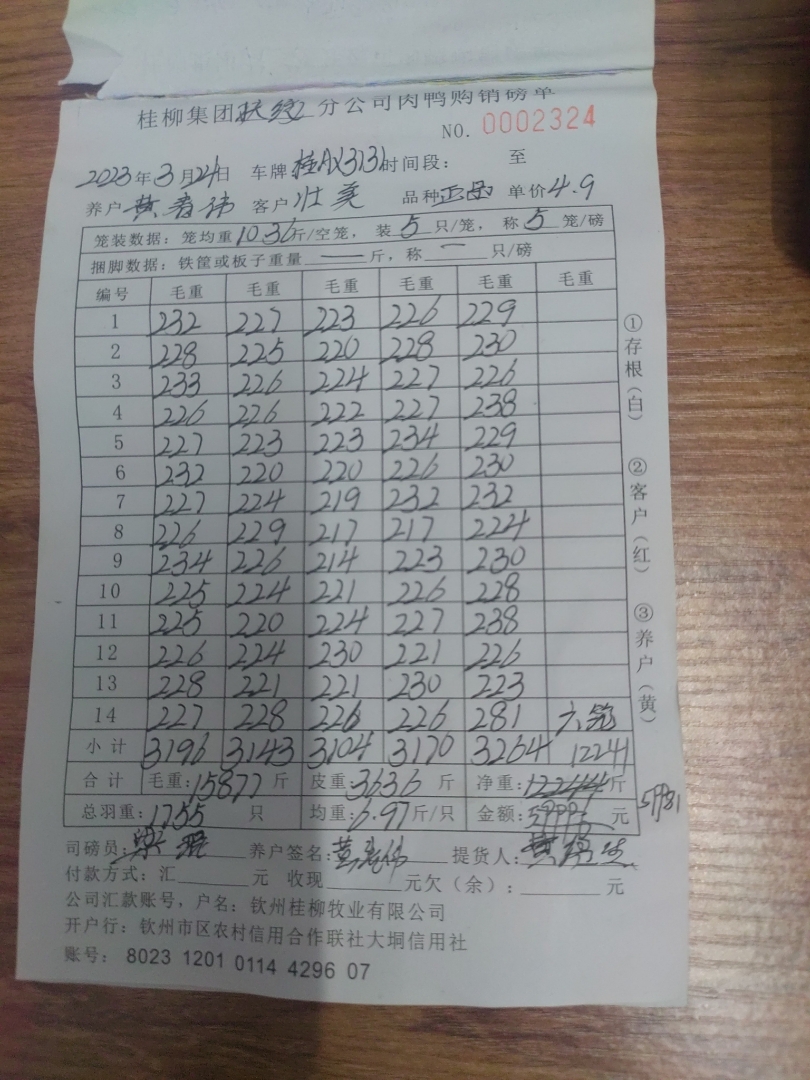 桂柳集团扶绥分公司肉鸭购销磅单
NO. 0002324
2023年3月24日 车牌 时间段: 至
养户 黄春伟 客户 壮美 品种 单价4.9
笼装数据:笼均重10.36斤/空笼,装5只/笼,称5笼/磅
捆脚数据:铁筐或板子重量——斤,称一只/磅
编号 毛重 毛重 毛重 毛重 毛重 毛重
1 232 227 223 226 229
2 228 225 220 228 230
3 233 226 224 227 226
4 226 226 222 227 238
5 227 223 223 234 229
6 232 220 220 226 230
7 227 224 219 232 232
8 226 229 217 217 224
9 234 226 214 223 230
10 225 224 221 226 228
11 225 220 224 227 238
12 226 224 230 221 226
13 228 221 221 230 223
14 227 228 226 226 281 六笼
小计 3196 3143 3104 3170 3264 12241
合计 毛重:15877斤 皮重:3636斤 净重:12244斤
总羽重:1755只 均重:6.97斤/只 金额: 元 59981
司磅员: 养户签名:黄春伟 提货人:
付款方式:汇 元 收现 元欠(余): 元
公司汇款账号,户名:钦州桂柳牧业有限公司
开户行:钦州市区农村信用合作联社大垌信用社
账号: 8023 1201 0114 4296 07
①存根(白) ②客户(红) ③养户(黄)